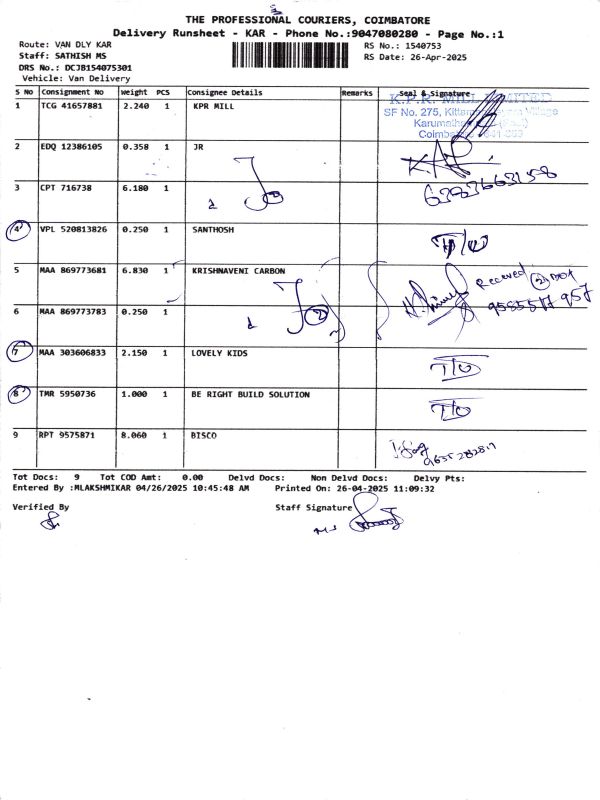 THE PROFESSIONAL COURIERS, COIMBATORE
Delivery Runsheet - KAR - Phone No.:9047080280 - Page No.:1
Route: VAN DLY KAR RS No.: 1540753
Staff: SATHISH MS RS Date: 26-Apr-2025
DRS No.: DCJB154075301
Vehicle: Van Delivery
S No Consignment No Weight PCS Consignee Details Remarks Seal & Signature
1 TCG 41657881 2.240 1 KPR MILL
K.P.R. MILL LIMITED
SF No. 275, Village
Coimbatore
2 EDQ 12386105 0.358 1 JR
3 CPT 716738 6.180 1
6383663158
4 VPL 520813826 0.250 1 SANTHOSH T/O
5 MAA 869773681 6.830 1 KRISHNAVENI CARBON
Received (2) BOX
9585517957
6 MAA 869773783 0.250 1
2
7 MAA 303606833 2.150 1 LOVELY KIDS T/O
8 TMR 5950736 1.000 1 BE RIGHT BUILD SOLUTION T/O
9 RPT 9575871 8.060 1 BISCO
Tot Docs: 9 Tot COD Amt: 0.00 Delvd Docs: Non Delvd Docs: Delvy Pts:
Entered By :MLAKSHMIKAR 04/26/2025 10:45:48 AM Printed On: 26-04-2025 11:09:32
Verified By Staff Signature